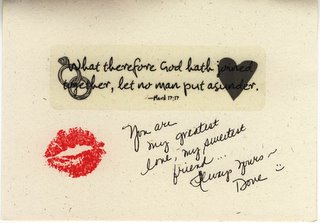 What therefore God hath joined
together, let no man put asunder.
You are
my greatest
love, my sweetest
friend...
Always Yours~